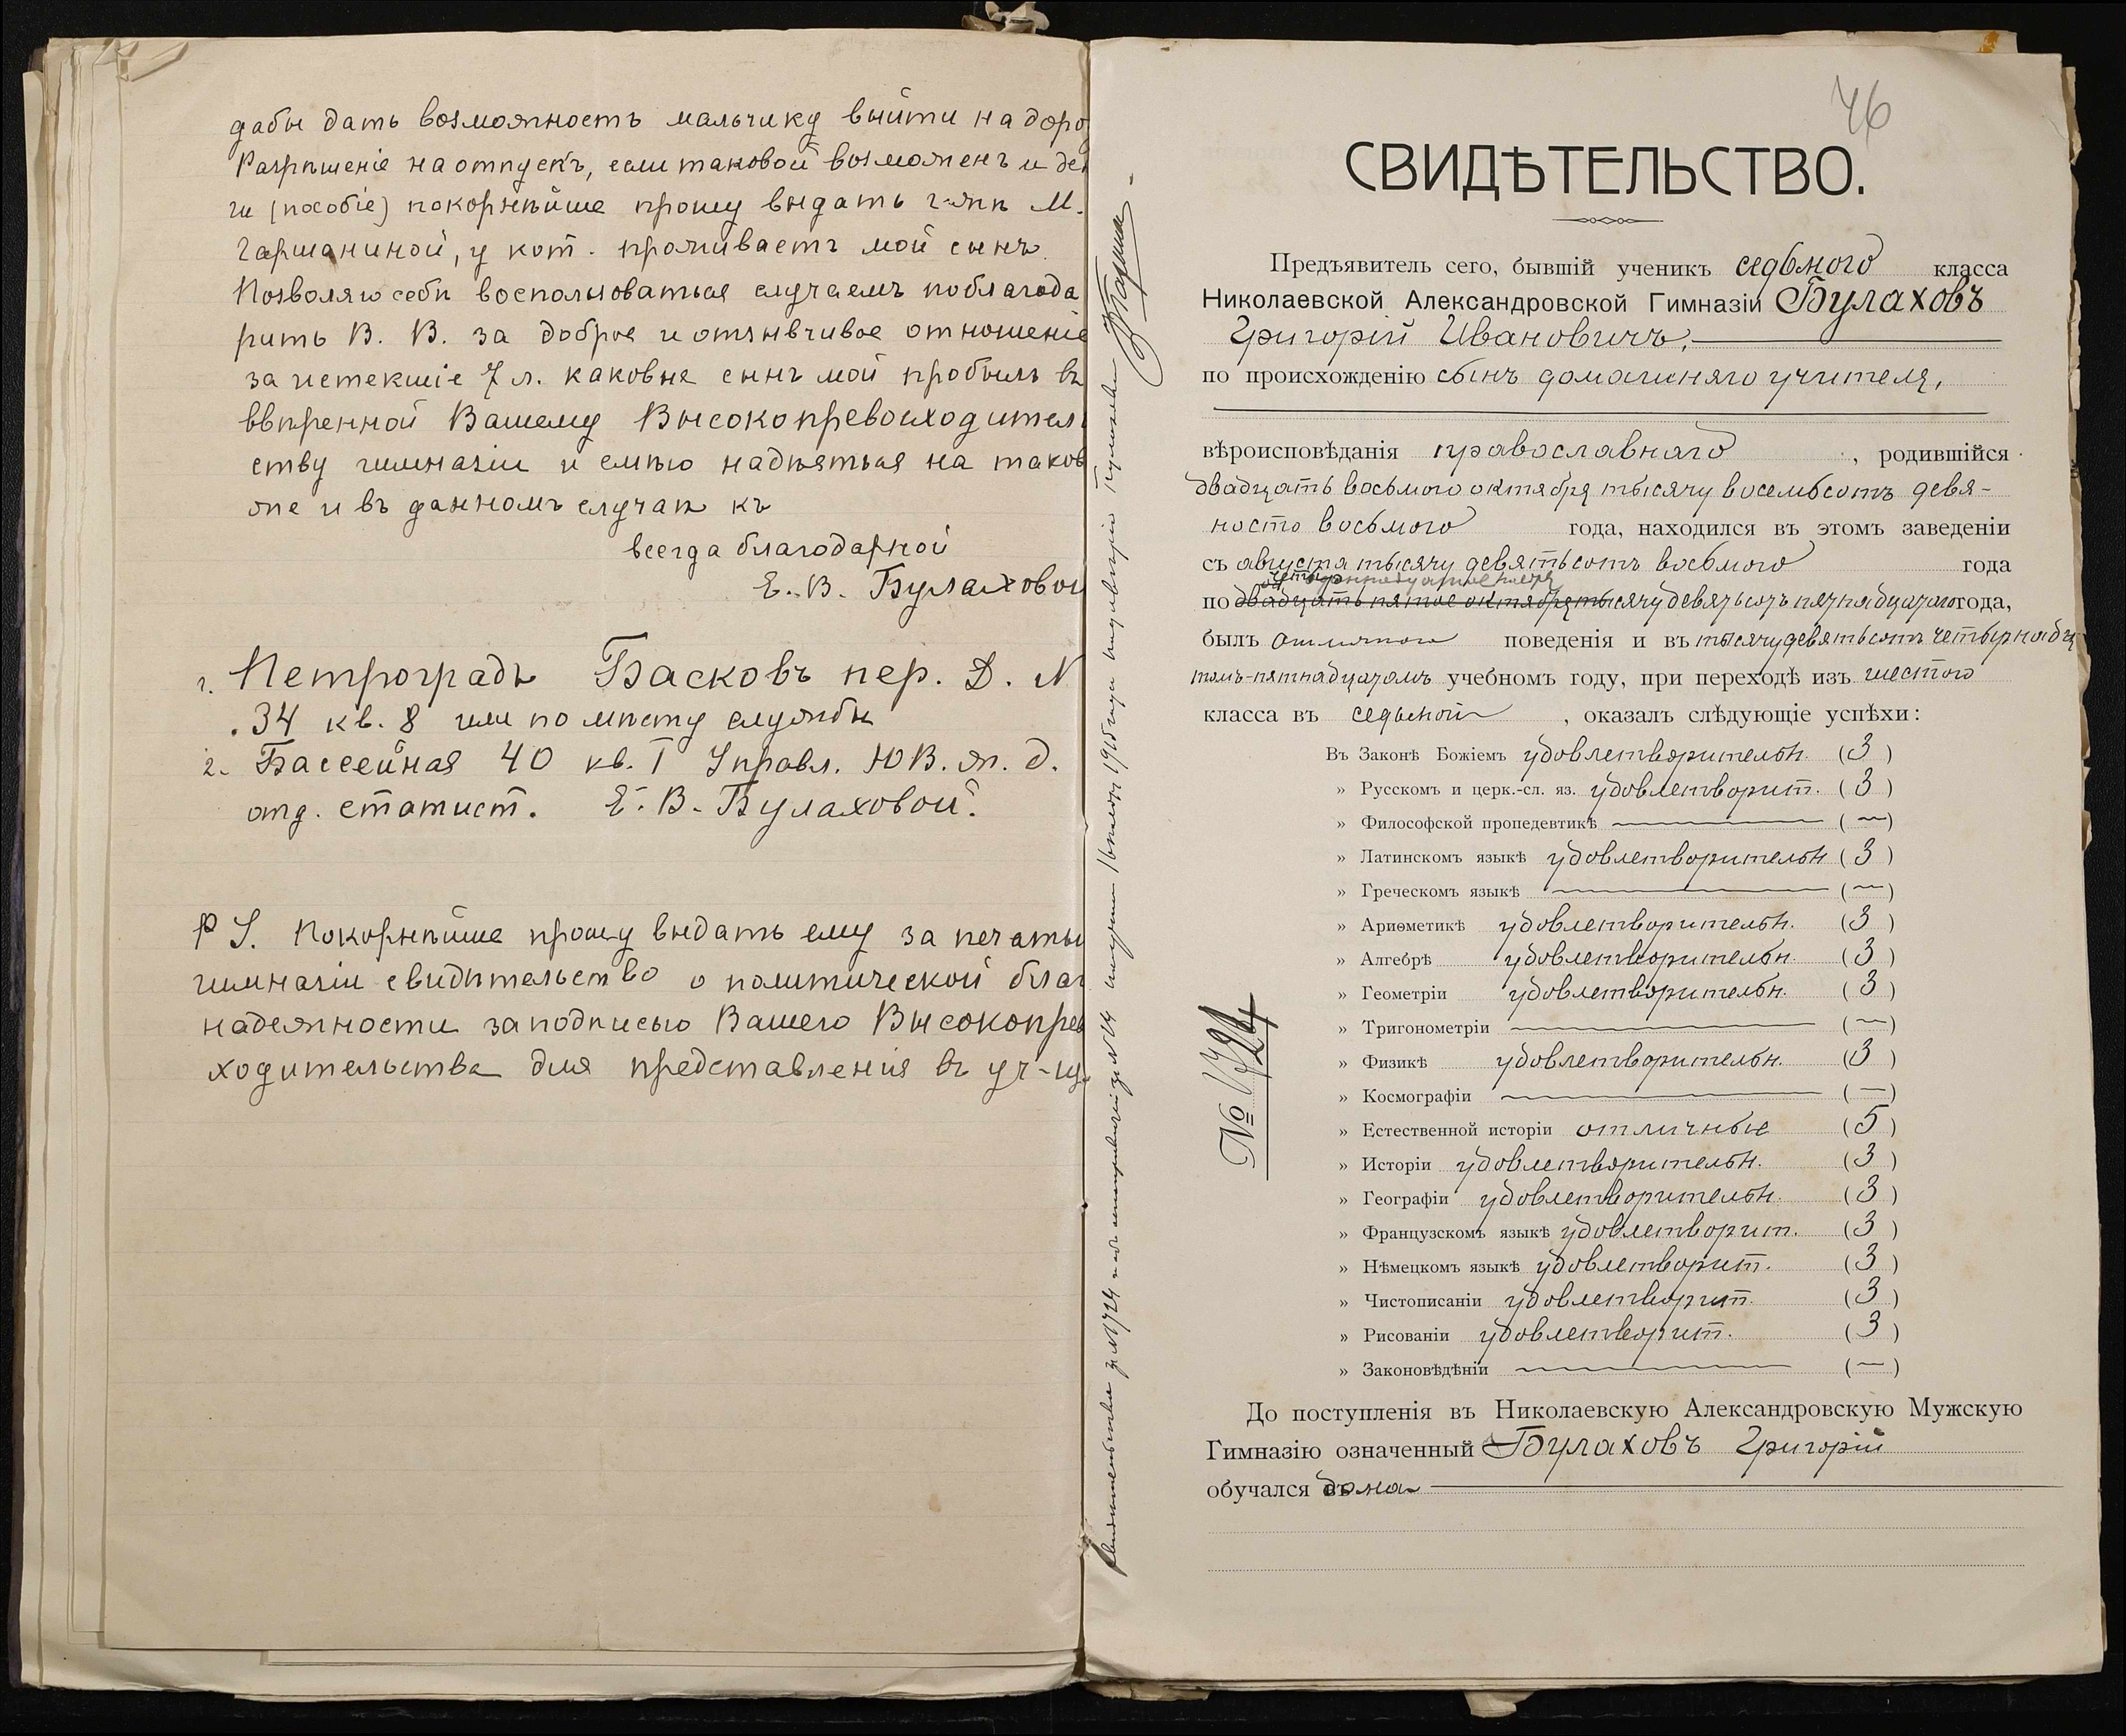 дабы дать возможность мальчику выйти на доро
Разрѣшеніе на отпускъ, если таковой возможенъ и ден
ги (пособіе) покорнѣйше прошу выдать г-жѣ М.
Гаршаниной, у кот. проживаетъ мой сынъ.
Позволяю себѣ воспользоваться случаемъ поблагода
рить В. В. за доброе и отзывчивое отношеніе
за истекшіе 7 л. каковые сынъ мой пробылъ въ
ввѣренной Вашему Высокопревосходитель
ству гимназіи и смѣю надѣяться на таков
ое и въ данномъ случаѣ къ
всегда благодарной
Е. В. Булаховой
1. Петроградъ Басковъ пер. Д. N
34 кв. 8 или по мѣсту службы
2. Бассейная 40 кв. 1 Управл. ЮВ. ж. д.
отд. статист. Е. В. Булаховой.
P S. Покорнѣйше прошу выдать ему за печатью
гимназіи свидѣтельство о политической благ
надежности за подписью Вашего Высокопрев
ходительства для представленія въ уч-щ
Свидѣтельство за №1724 и № 14 получилъ 16 1915 года гимназіи
46
СВИДѢТЕЛЬСТВО.
Предъявитель сего, бывшій ученикъ седьмого класса
Николаевской Александровской Гимназіи Булаховъ
Григорій Ивановичъ,
по происхожденію сынъ домашняго учителя,
вѣроисповѣданія православнаго, родившійся
двадцать восьмого октября тысячу восемьсотъ девя-
носто восьмого года, находился въ этомъ заведеніи
съ августа тысячу девятьсотъ восьмого года
по двадцать пятое октября тысячу девятьсотъ пятнадцатаго года,
былъ отличнаго поведенія и въ тысячу девятьсотъ четырнадца
томъ-пятнадцатомъ учебномъ году, при переходѣ изъ шестого
класса въ седьмой, оказалъ слѣдующіе успѣхи:
Въ Законѣ Божіемъ удовлетворительн. (3)
» Русскомъ и церк.-сл. яз. удовлетворит. (3)
» Философской пропедевтикѣ — (—)
» Латинскомъ языкѣ удовлетворительн (3)
» Греческомъ языкѣ — (—)
» Ариѳметикѣ удовлетворительн. (3)
» Алгебрѣ удовлетворительн. (3)
» Геометріи удовлетворительн. (3)
» Тригонометріи — (—)
» Физикѣ удовлетворительн. (3)
» Космографіи — (—)
» Естественной исторіи отличные (5)
» Исторіи удовлетворительн. (3)
» Географіи удовлетворительн. (3)
» Французскомъ языкѣ удовлетворит. (3)
» Нѣмецкомъ языкѣ удовлетворит. (3)
» Чистописаніи удовлетворит. (3)
» Рисованіи удовлетворит. (3)
» Законовѣдѣніи — (—)
№ 1724
До поступленія въ Николаевскую Александровскую Мужскую
Гимназію означенный Булаховъ Григорій
обучался дома